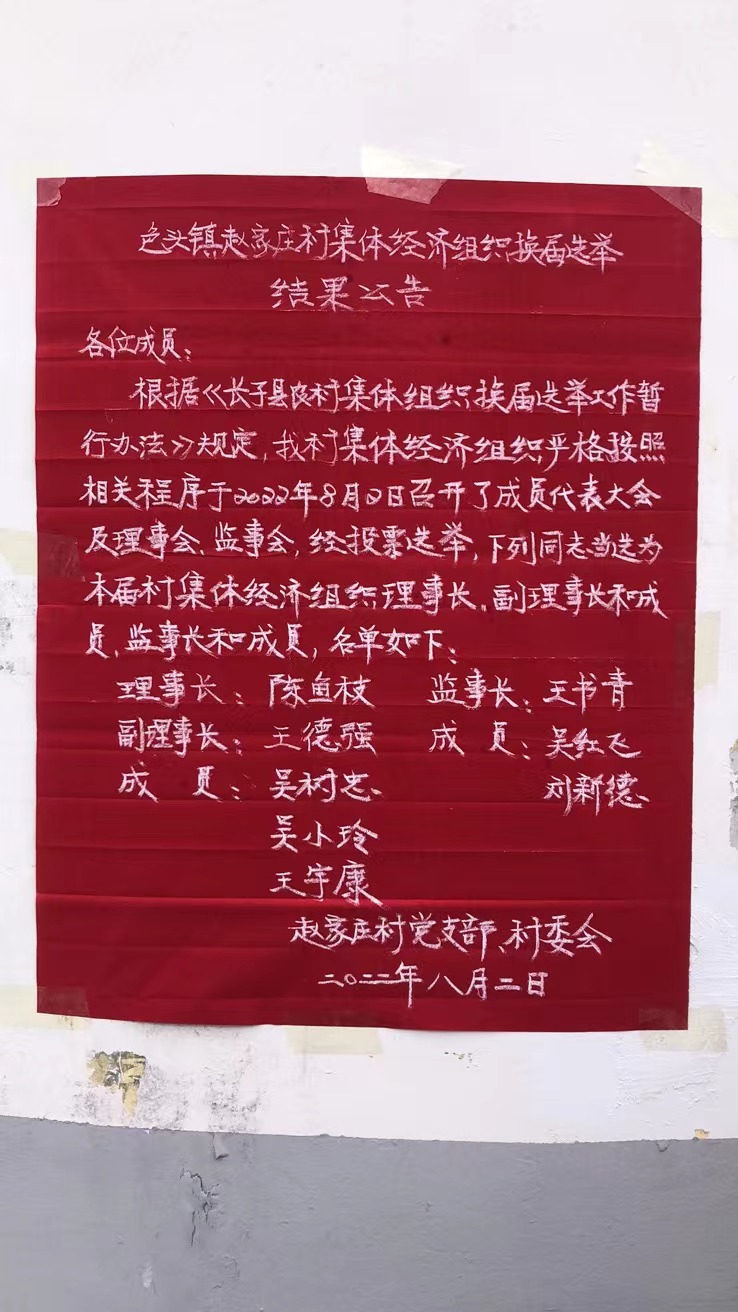 色头镇赵家庄村集体经济组织换届选举
结果公告
各位成员：
根据《长子县农村集体组织换届选举工作暂
行办法》规定，我村集体经济组织严格按照
相关程序于2022年8月2日召开了成员代表大会
及理事会、监事会，经投票选举，下列同志当选为
本届村集体经济组织理事长、副理事长和成
员、监事长和成员，名单如下：
理事长：陈鱼枝 监事长：王书青
副理事长：王德强 成 员：吴红飞
成 员：吴树忠、 刘新德、
吴小玲
王宇康
赵家庄村党支部、村委会
二〇二二年八月二日